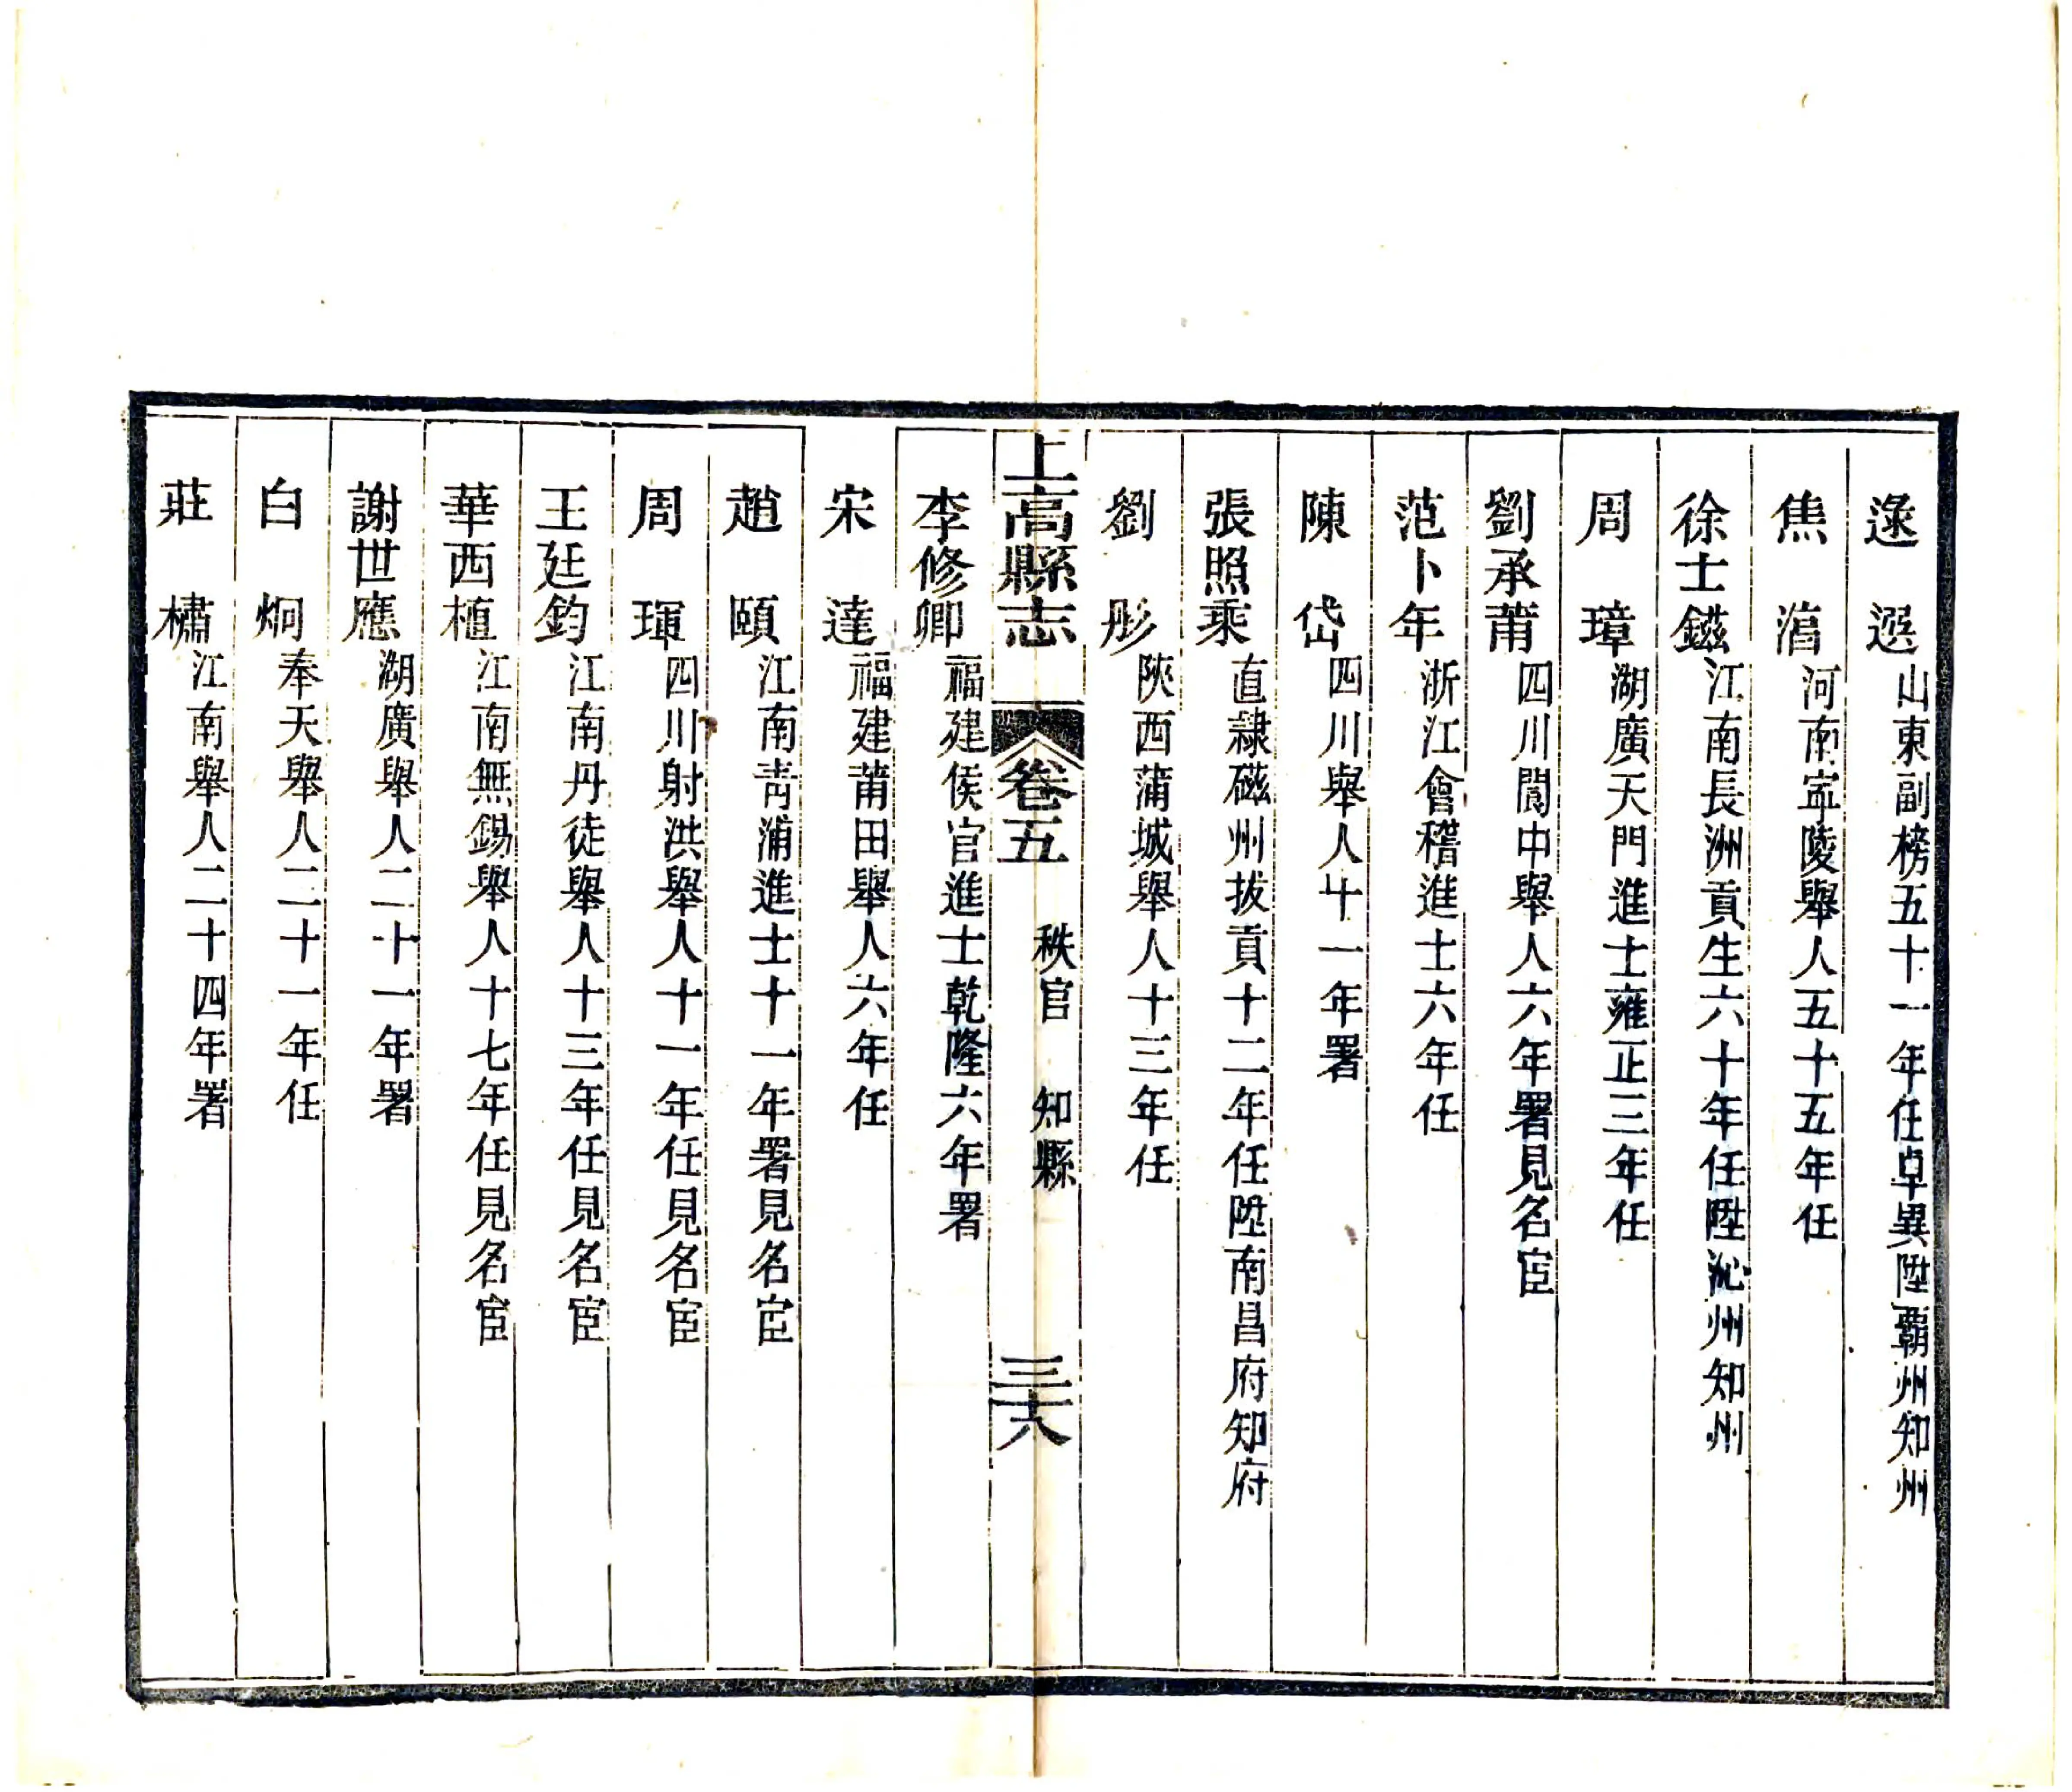 逯　選山東副榜五十一年任卓異陞霸州知州
焦　滈河南寧陵舉人五十五年任
徐士鎡江南長洲貢生六十年任陞沁州知州
周　璋湖廣天門進士雍正三年任
劉承莆四川閬中舉人六年署見名宦
范卜年浙江會稽進士六年任
陳　岱四川舉人十一年署
張照乘直隸磁州拔貢十二年任陞南昌府知府
劉　彤陝西蒲城舉人十三年任
上高縣志　卷五　秩官　知縣　三十八
李修卿福建侯官進士乾隆六年署
宋　達福建莆田舉人六年任
趙　頤江南青浦進士十一年署見名宦
周　琿四川射洪舉人十一年任見名宦
王廷鈞江南丹徒舉人十三年任見名宦
華西植江南無錫舉人十七年任見名宦
謝世應湖廣舉人二十一年署
白　炯奉天舉人二十一年任
莊　橚江南舉人二十四年署